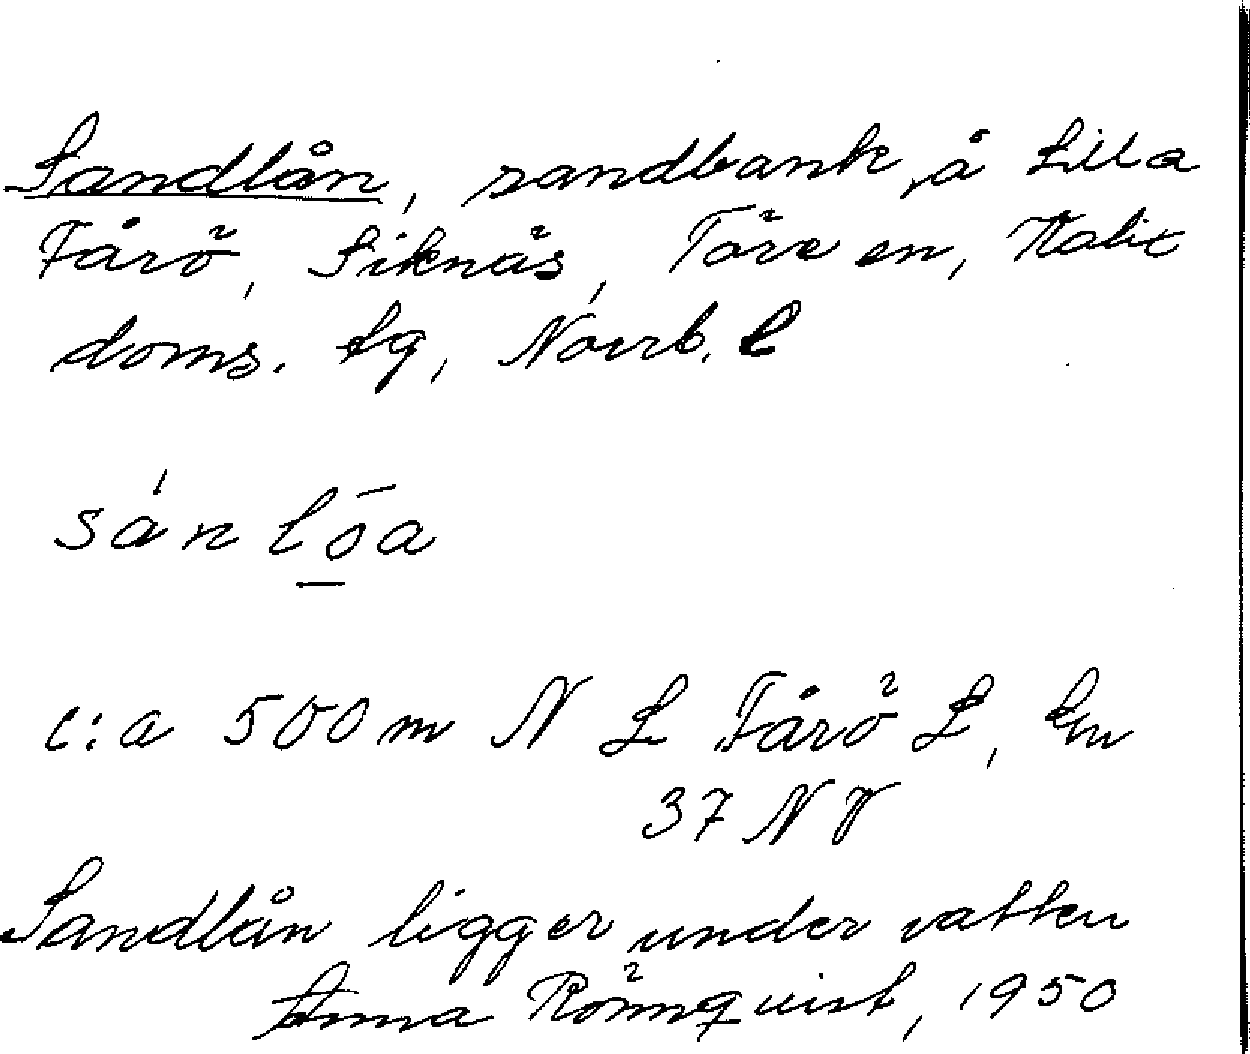 Sandlån, sandbank, å Lilla
Fårö, Siknäs, Töre en, Kalix
doms. tg, Norrb. l
sánlō̲a
c:a 500 m N L Fårö L, km
37 NV
Sandlån ligger under vatten
Anna Rönnquist, 1950